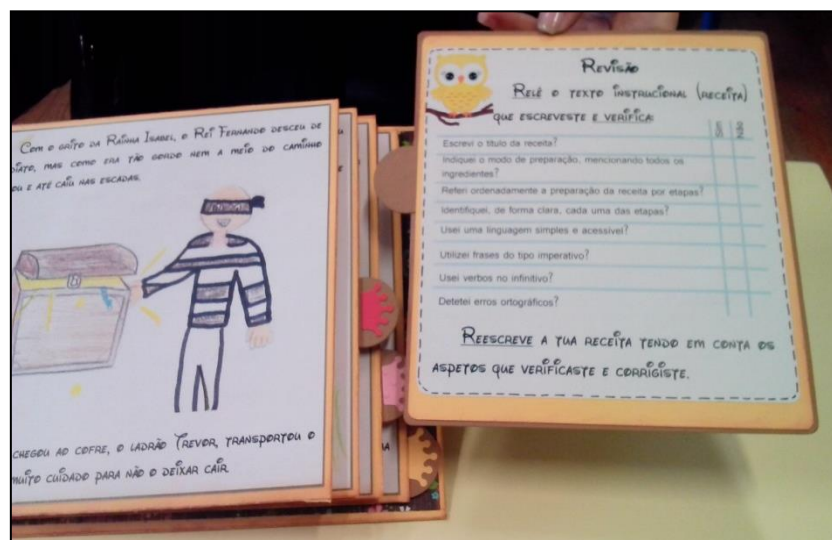 Com o grito da Rainha Isabel, o Rei Fernando desceu de
mas como era tão gordo nem a meio do caminho
ou e até caiu nas escadas.
chegou ao cofre, o ladrão Trevor, transportou o
muito cuidado para não o deixar cair
Revisão
Relê o texto instrucional (receita)
que escreveste e verifica:
Sim
Não
Escrevi o título da receita?
Indiquei o modo de preparação, mencionando todos os
ingredientes?
Referi ordenadamente a preparação da receita por etapas?
Identifiquei, de forma clara, cada uma das etapas?
Usei uma linguagem simples e acessível?
Utilizei frases do tipo imperativo?
Usei verbos no infinitivo?
Detetei erros ortográficos?
Reescreve a tua receita tendo em conta os
aspetos que verificaste e corrigiste.